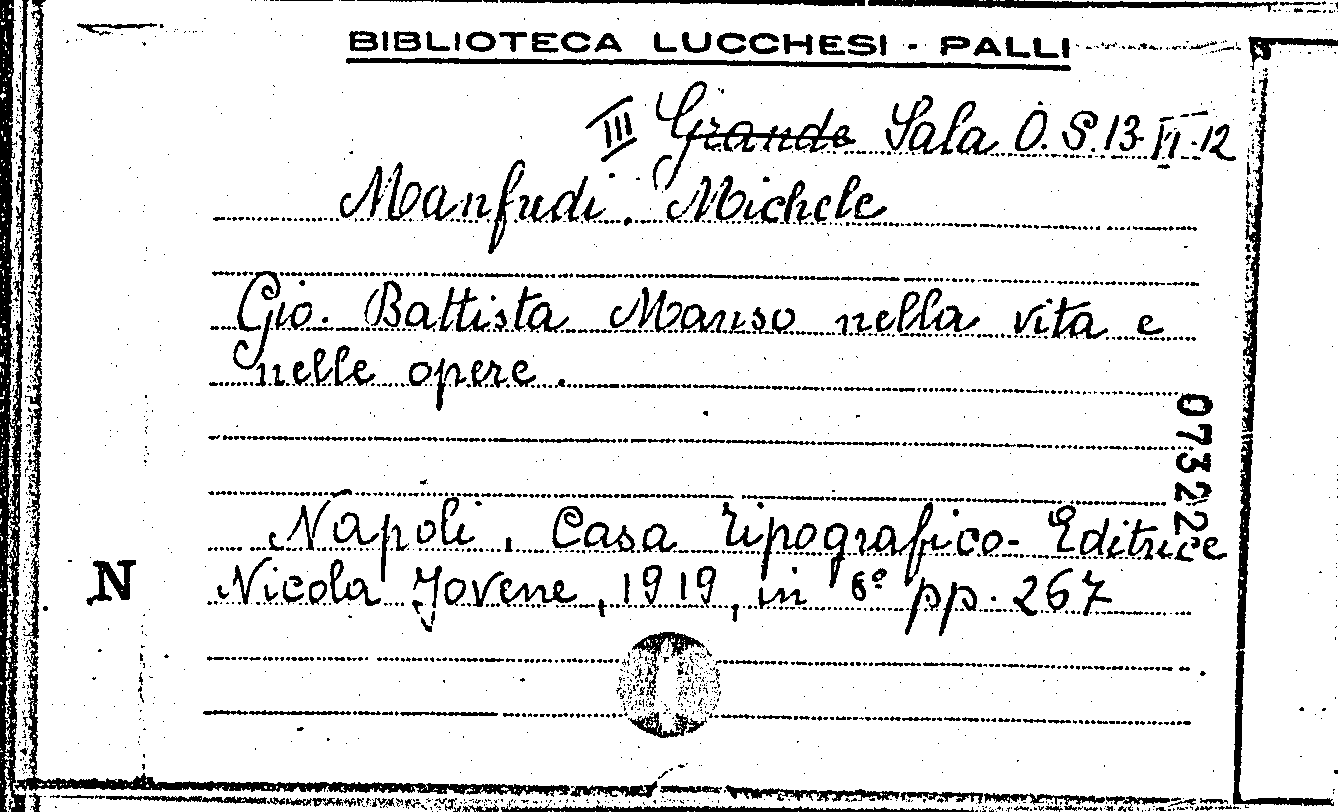 BIBLIOTECA LUCCHESI - PALLI
III Grande Sala O. S. 13 VI. 12
Manfredi. Michele
Gio. Battista Manso nella vita e
nelle opere.
07322
Napoli, Casa Tipografico-Editrice
N
Nicola Jovene, 1919, in 8º pp. 267